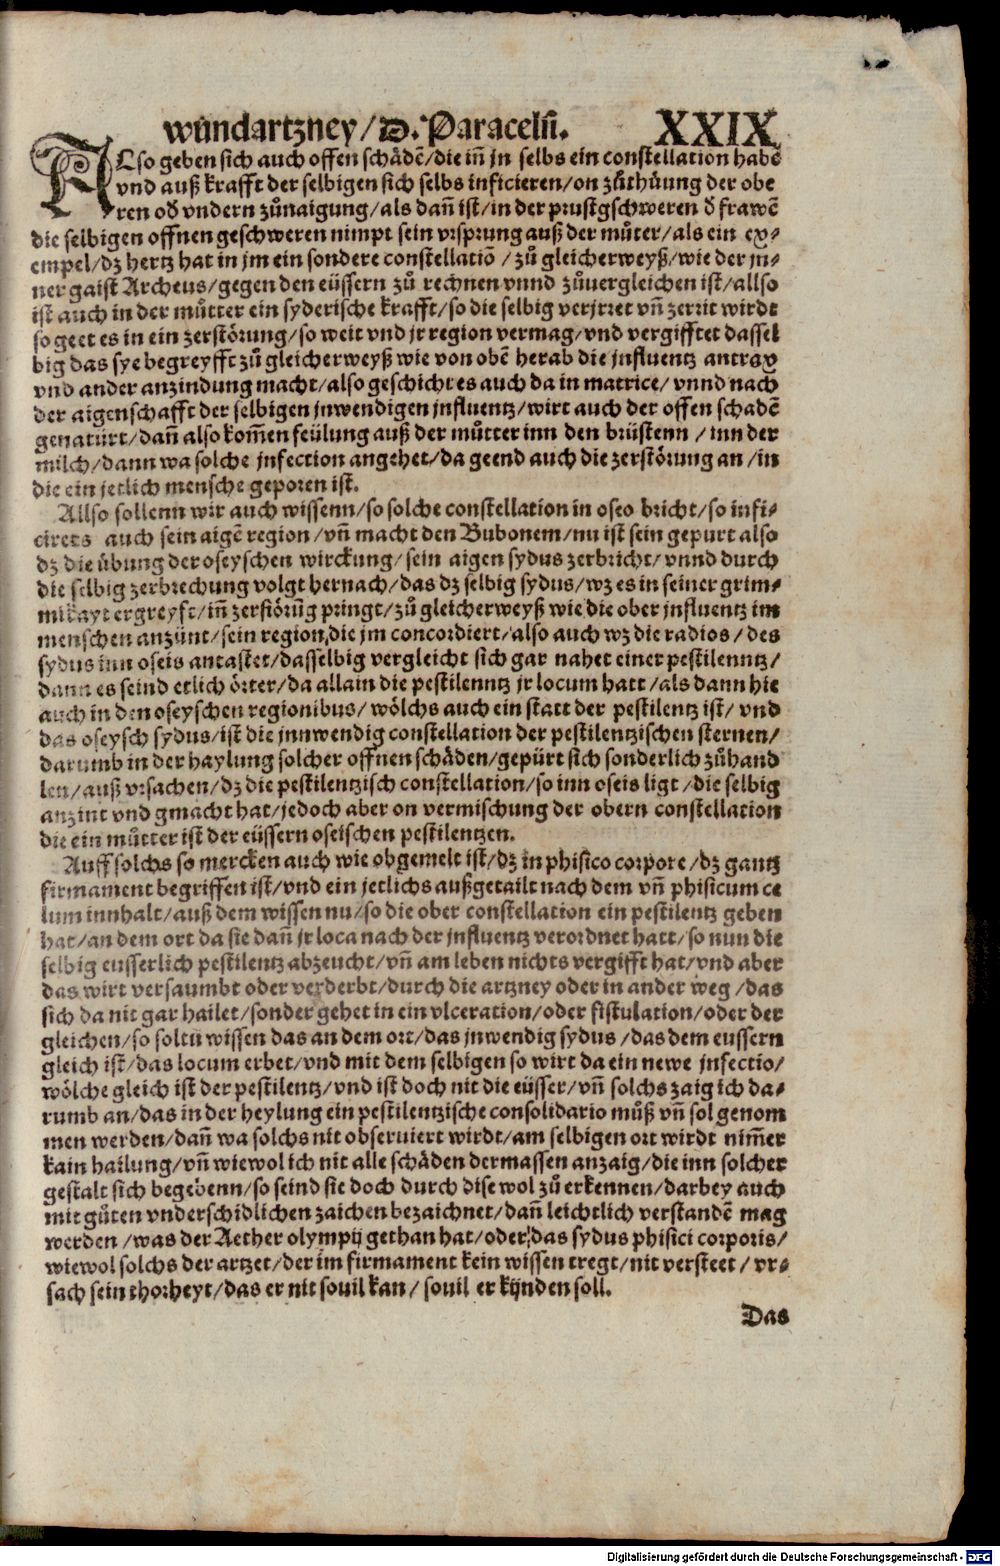 wůndartzney/ D. Paracelsi.
XXIX
ALso geben sich auch offen schädē/die iñ jn selbs ein constellation habē
vnd auß krafft der selbigen sich selbs inficieren/on zůthůung der obe
ren oď vndern zůnaigung/als dañ ist/in der prustgschweren ď frawē
die selbigen offnen geschweren nimpt sein vrsprung auß der můter/als ein ex⸗
empel/dz hertz hat in jm ein sondere constellatiō/zů gleicherweyß/wie der jn⸗
ner gaist Archeus/gegen den eüssern zů rechnen vnnd zůuergleichen ist/allso
ist auch in der můtter ein syderische krafft/so die selbig verjrret vñ zerrit wirdt
so geet es in ein zerstörung/so weit vnd jr region vermag/vnd vergifftet dassel
big das sye begreyfft zů gleicherweyß wie von obē herab die jnfluentz antrax
vnd ander anzindung macht/also geschicht es auch da in matrice/ vnnd nach
der aigenschafft der selbigen jnwendigen jnfluentz/wirt auch der offen schadē
genatürt/dañ also kom̄en feülung auß der můtter inn den brüstenn /inn der
milch/dann wa solche jnfection angehet/da geend auch die zerstörung an /in
die ein jetlich mensche geporen ist.
Allso sollenn wir auch wissenn/so solche constellation in oseo bricht/so infi⸗
cirets auch sein aigē region/vñ macht den Bubonem/nu ist sein gepurt also
dz die übung der oseyschen wirckung/sein aigen sydus zerbricht/vnnd durch
die selbig zerbrechung volgt hernach/das dz selbig sydus/wz es in seiner grim⸗
mikayt ergreyft/iñ zerstörūg pringt/zů gleicherweyß wie die ober jnfluentz im
menschen anzünt/sein region,die jm concordiert/also auch wz die radios/des
sydus inn oseis antastet/dasselbig vergleicht sich gar nahet einer pestilenntz/
dann es seind etlich örter/da allain die pestilenntz jr locum hatt/als dann hie
auch in den oseyschen regionibus/ wölchs auch ein statt der pestilentz ist/ vnd
das oseysch sydus/ist die jnnwendig constellation der pestilentzischen sternen/
darumb in der haylung solcher offnen schäden/gepürt sich sonderlich zůhand
len/auß vrsachen/dz die pestilentzisch constellation/so inn oseis ligt/die selbig
anzint vnd gmacht hat/jedoch aber on vermischung der obern constellation
die ein můtter ist der eüssern oseischen pestilentzen.
Auff solchs so mercken auch wie obgemelt ist/dz in phisico corpore/dz gantz
firmament begriffen ist/vnd ein jetlichs außgetailt nach dem vñ phisicum ce
lum innhalt/auß dem wissen nu/so die ober constellation ein pestilentz geben
hat/an dem ort da sie dañ jr loca nach der jnfluentz verordnet hatt/so nun die
selbig eusserlich pestilentz abzeucht/vñ am leben nichts vergifft hat/vnd aber
das wirt versaumbt oder verderbt/durch die artzney oder in ander weg/das
sich da nit gar hailet/sonder gehet in ein vlceration/oder fistulation/oder der
gleichen/so soltu wissen das an dem ort/das jnwendig sydus/das dem eussern
gleich ist/das locum erbet/vnd mit dem selbigen so wirt da ein newe jnfectio/
wölche gleich ist der pestilentz/vnd ist doch nit die eüsser/vñ solchs zaig ich da⸗
rumb an/das in der heylung ein pestilentzische consolidario můß vñ sol genom
men werden/dañ wa solchs nit obseruiert wirdt/am selbigen ort wirdt nim̄er
kain hailung/vñ wiewol ich nit alle schäden dermassen anzaig/die inn solcher
gestalt sich begebenn/so seind sie doch durch dise wol zů erkennen/darbey auch
mit gůten vnderschidlichen zaichen bezaichnet/dañ leichtlich verstandē mag
werden/was der Aether olympij gethan hat/oder das sydus phisici corporis/
wiewol solchs der artzet/der im firmament kein wissen tregt/nit versteet/ vr⸗
sach sein thorheyt/das er nit souil kan/ souil er kynden soll.
Das
Digitalisierung gefördert durch die Deutsche Forschungsgemeinschaft - DFG